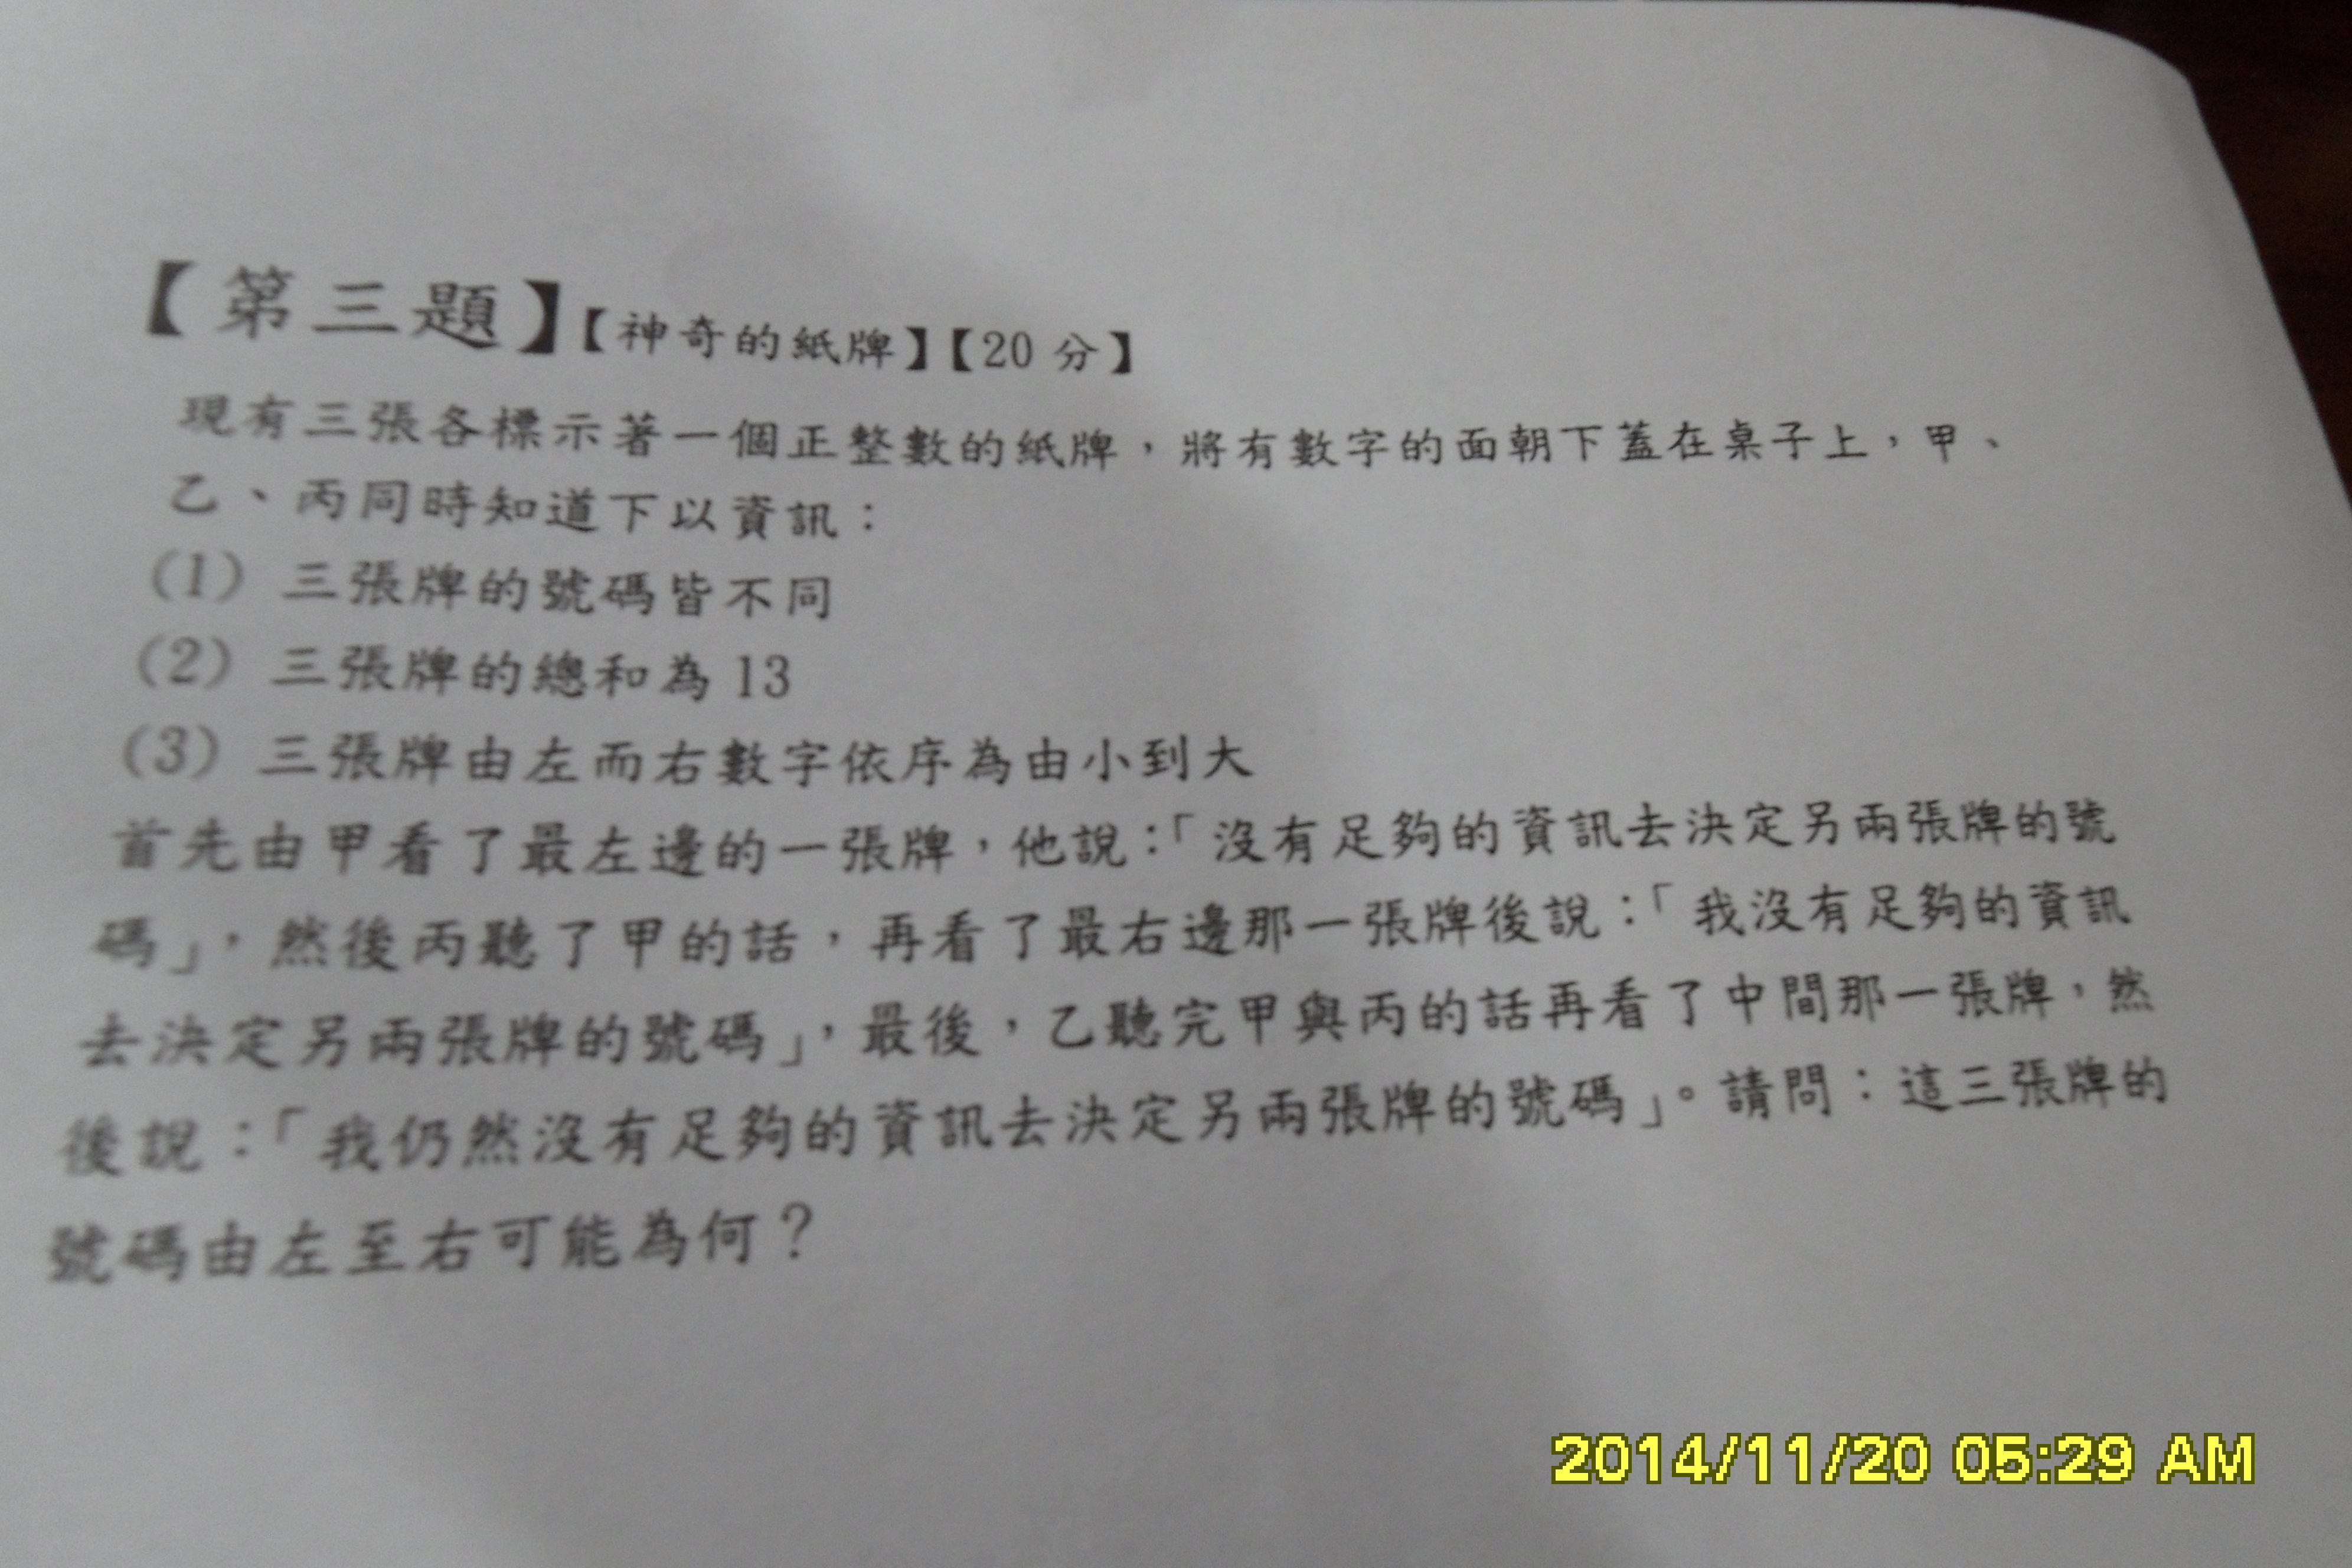 【第三題】【神奇的紙牌】【20 分】
現有三張各標示著一個正整數的紙牌，將有數字的面朝下蓋在桌子上，甲、
乙、丙同時知道下以資訊：
(1) 三張牌的號碼皆不同
(2) 三張牌的總和為 13
(3) 三張牌由左而右數字依序為由小到大
首先由甲看了最左邊的一張牌，他說：「沒有足夠的資訊去決定另兩張牌的號
碼」，然後丙聽了甲的話，再看了最右邊那一張牌後說：「我沒有足夠的資訊
去決定另兩張牌的號碼」，最後，乙聽完甲與丙的話再看了中間那一張牌，然
後說：「我仍然沒有足夠的資訊去決定另兩張牌的號碼」。請問：這三張牌的
號碼由左至右可能為何？
2014/11/20 05:29 AM